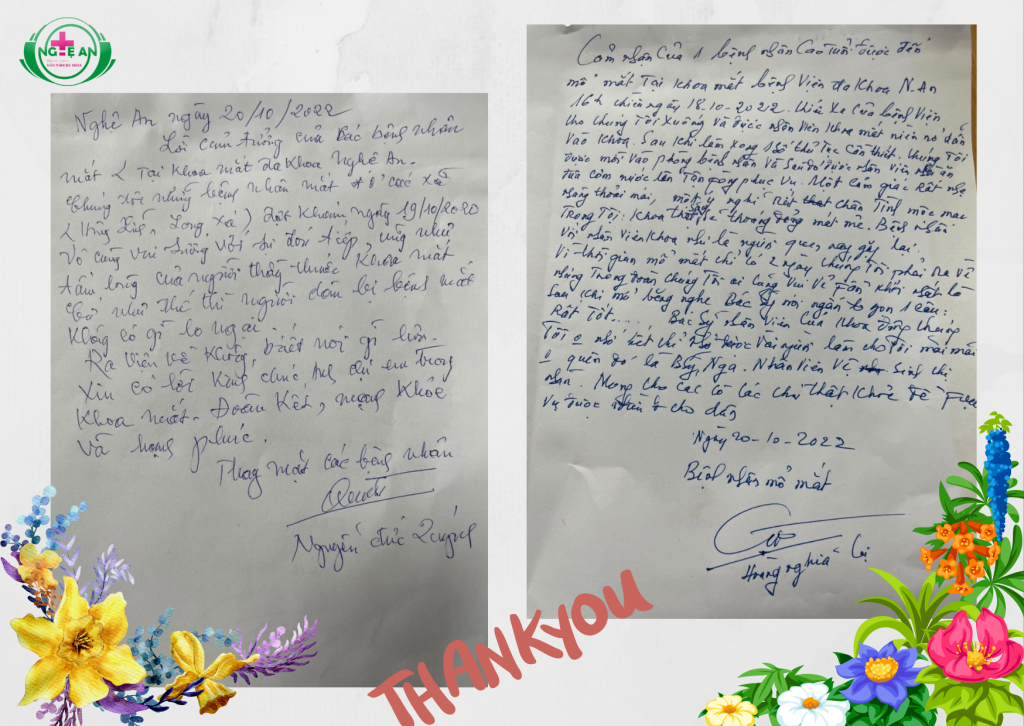 NGHỆ AN
Nghệ An ngày 20/10/2022
Lời cảm tưởng của Bác bệnh nhân
mắt Tại Khoa mắt đa Khoa Nghệ An.
Chúng tôi những bệnh nhân mắt ở các xã
Long, xá) đợt Khám ngày 19/10/2020
Vô cùng vui Sướng với sự đón tiếp, cũng như
tấm lòng của người thầy thuốc Khoa mắt
Cứ như thế thì người dân bị bệnh mắt
Không có gì lo ngại.
Ra viện kể không biết nói gì hơn
Xin có lời Kính chúc Anh chị em trong
Khoa mắt. Đoàn Kết, mạnh Khỏe
Và hạnh phúc.
Thay mặt các bệnh nhân
Nguyễn đức
Cảm nhận Của 1 bệnh nhân Cao Tuổi được đến
mổ mắt Tại Khoa mắt bệnh Viện đa Khoa N.An
16h chiều ngày 18.10-2022. Xe Của bệnh Viện
cho chúng Tôi Xuống và được nhân Viên Khoa mắt dẫn
Vào Khoa. Sau Khi làm xong 1 số thủ Tục Cần thiết. Chúng Tôi
được mời Vào phòng bệnh nhân Và Sau đó được nhân Viên
đưa Cơm nước lên phục Vụ. Một Cảm giác Rất nhẹ
nhàng thoải mái, một ý nghĩ Rất Chân Tình mộc mạc
Trong Tôi: Khoa Thật Sự thoáng mát mẻ. Bệnh nhân
Với nhân Viên Khoa như là người quen nay gặp lại.
Vì thời gian mổ mắt chỉ có 2 ngày Chúng Tôi phải Ra Về
nhưng Trong đoàn chúng Tôi ai Cũng Vui Vẻ phấn Khởi nhất là
Sau Khi mổ băng nghe Bác Sỹ nói ngắn gọn 1 câu:
Rất Tốt.... Bác Sỹ nhân Viên Của Khoa Đông chúng
Tôi 0 nhớ hết chỉ nhớ được vài người làm cho Tôi mãi mãi
0 quên đó là Nga. Nhân Viên Vệ Sinh chị
nhàn. Mong cho các cô các chú Thật Khỏe để phục
Vụ được cho dân
Ngày 20-10-2022
Bệnh nhân mổ mắt
Hoàng nghĩa
THANKYOU